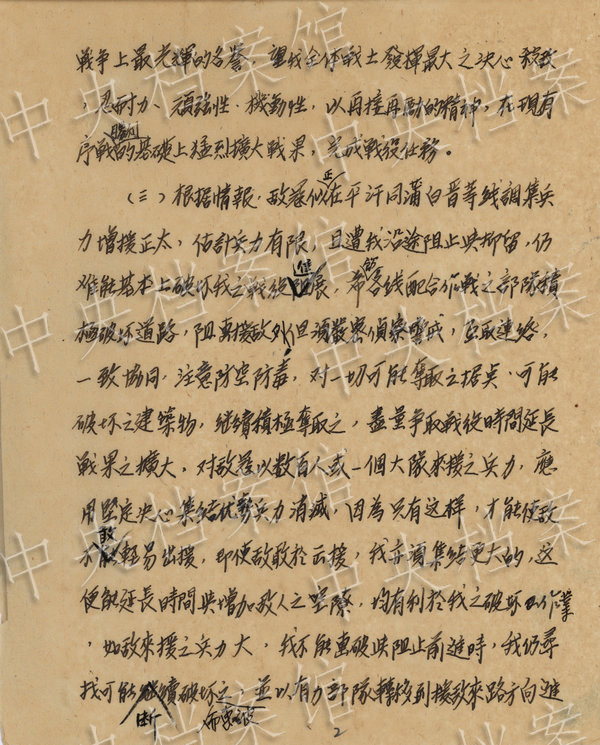 戰争上最光輝的名譽，望我全体战士發揮最大之决心 积极
，忍耐力、頑強性、機動性，以再接再励的精神，在現有
序戰的基礎上猛烈擴大戰果，完成戰役任務。
（三）根据情報，敌寇似正在平汗同蒲白晋等綫調集兵
力增援正太，估計兵力有限，且遭我沿途阻止與抑留，仍
难能基本上破坏我之戰役進展，希飭各綫配合作战之部隊積
極破坏道路，阻高接敌外但須嚴密偵察警戒，互取連絡，
一致協同，注意防空防毒，对一切可能奪取之据点，可能
破坏之建築物，継續積極奪取之，盡量争取戰役時間延長
戰果之擴大，对敌寇以数百人或一個大隊來援之兵力，應
用堅定决心集结优势兵力消滅，因為只有这样，才能使敌
不敢輕易出援，即使敌敢於出援，我亦須集结更大的，这
便能延長時間與增加敌人之空隙，均有利於我之破坏工作業
，如敌來援之兵力大，我不能擊破與阻止前進時，我仍尋
找可能継續破坏之，並以有力部隊轉移到援敌來路方向進
断
2
中央档案馆